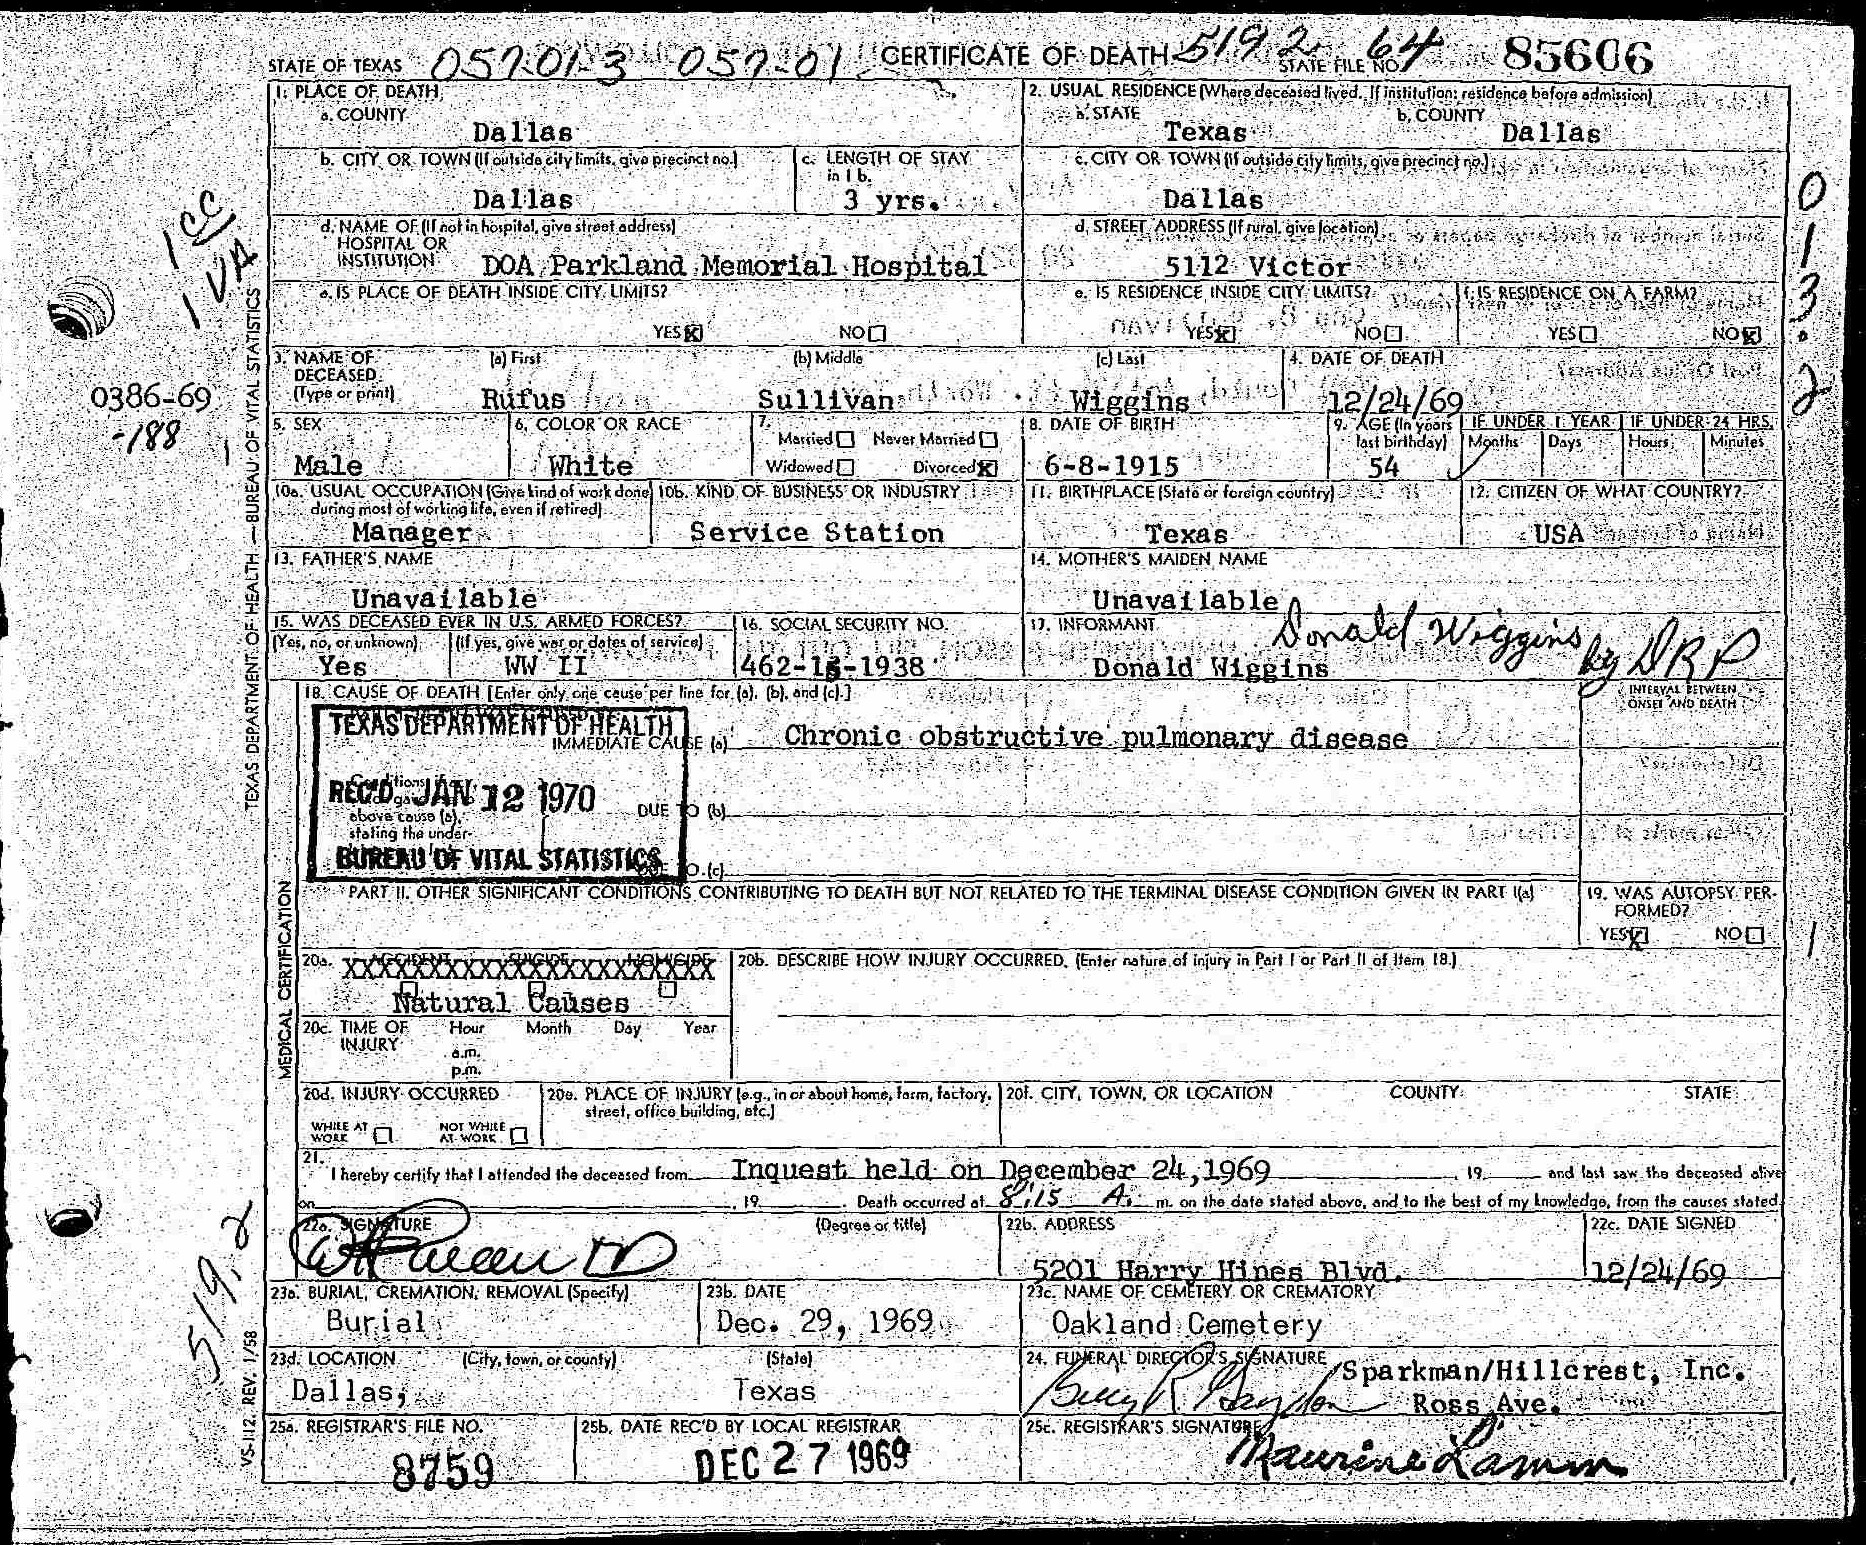 STATE OF TEXAS 057-01-3 057-01 CERTIFICATE OF DEATH 519.2 64 STATE FILE NO. 85606
1. PLACE OF DEATH
a. COUNTY
Dallas
2. USUAL RESIDENCE (Where deceased lived. If institution: residence before admission)
a. STATE
Texas
b. COUNTY
Dallas
b. CITY OR TOWN (If outside city limits, give precinct no.)
Dallas
c. LENGTH OF STAY in 1 b.
3 yrs.
c. CITY OR TOWN (If outside city limits, give precinct no.)
Dallas
d. NAME OF (If not in hospital, give street address)
HOSPITAL OR
INSTITUTION DOA Parkland Memorial Hospital
d. STREET ADDRESS (If rural, give location)
5112 Victor
e. IS PLACE OF DEATH INSIDE CITY LIMITS?
YES X NO
e. IS RESIDENCE INSIDE CITY LIMITS?
YES X NO
f. IS RESIDENCE ON A FARM?
YES NO X
3. NAME OF DECEASED (Type or print)
(a) First
Rufus
(b) Middle
Sullivan
(c) Last
Wiggins
4. DATE OF DEATH
12/24/69
5. SEX
Male
6. COLOR OR RACE
White
7.
Married Never Married
Widowed Divorced X
8. DATE OF BIRTH
6-8-1915
9. AGE (In years last birthday)
54
IF UNDER 1 YEAR
Months Days
IF UNDER 24 HRS.
Hours Minutes
10a. USUAL OCCUPATION (Give kind of work done during most of working life, even if retired)
Manager
10b. KIND OF BUSINESS OR INDUSTRY
Service Station
11. BIRTHPLACE (State or foreign country)
Texas
12. CITIZEN OF WHAT COUNTRY?
USA
13. FATHER'S NAME
Unavailable
14. MOTHER'S MAIDEN NAME
Unavailable
15. WAS DECEASED EVER IN U.S. ARMED FORCES?
(Yes, no, or unknown)
Yes
(If yes, give war or dates of service)
WW II
16. SOCIAL SECURITY NO.
17. INFORMANT
Donald Wiggins by DRP
Donald Wiggins
18. CAUSE OF DEATH [Enter only one cause per line for (a), (b), and (c).]
INTERVAL BETWEEN ONSET AND DEATH
TEXAS DEPARTMENT OF HEALTH
REC'D JAN 12 1970
BUREAU OF VITAL STATISTICS
IMMEDIATE CAUSE (a) Chronic obstructive pulmonary disease
above cause (a),
stating the under-
DUE TO (b)
(c)
PART II. OTHER SIGNIFICANT CONDITIONS CONTRIBUTING TO DEATH BUT NOT RELATED TO THE TERMINAL DISEASE CONDITION GIVEN IN PART I(a)
19. WAS AUTOPSY PERFORMED?
YES X NO
20a. ACCIDENT SUICIDE HOMICIDE
XXXXXXXXXXXXXXXXXXXXXXX
Natural Causes
20b. DESCRIBE HOW INJURY OCCURRED. (Enter nature of injury in Part I or Part II of Item 18.)
20c. TIME OF INJURY
Hour Month Day Year
a.m.
p.m.
20d. INJURY OCCURRED
WHILE AT WORK NOT WHILE AT WORK
20e. PLACE OF INJURY (e.g., in or about home, farm, factory, street, office building, etc.)
20f. CITY, TOWN, OR LOCATION COUNTY STATE
21.
I hereby certify that I attended the deceased from Inquest held on December 24,1969 , 19 and last saw the deceased alive
on , 19 . Death occurred at 8:15 A. m. on the date stated above, and to the best of my knowledge, from the causes stated.
22a. SIGNATURE (Degree or title)
22b. ADDRESS
5201 Harry Hines Blvd.
22c. DATE SIGNED
12/24/69
23a. BURIAL, CREMATION, REMOVAL (Specify)
Burial
23b. DATE
Dec. 29, 1969
23c. NAME OF CEMETERY OR CREMATORY
Oakland Cemetery
23d. LOCATION (City, town, or county) (State)
Dallas, Texas
24. FUNERAL DIRECTOR'S SIGNATURE
Sparkman/Hillcrest, Inc.
Ross Ave.
25a. REGISTRAR'S FILE NO.
8759
25b. DATE REC'D BY LOCAL REGISTRAR
DEC 27 1969
25c. REGISTRAR'S SIGNATURE
Maurine Lamm
1 cc
1 VA
0386-69
-188
519.2
TEXAS DEPARTMENT OF HEALTH — BUREAU OF VITAL STATISTICS
MEDICAL CERTIFICATION
VS-112. REV. 1/58
013.2
1